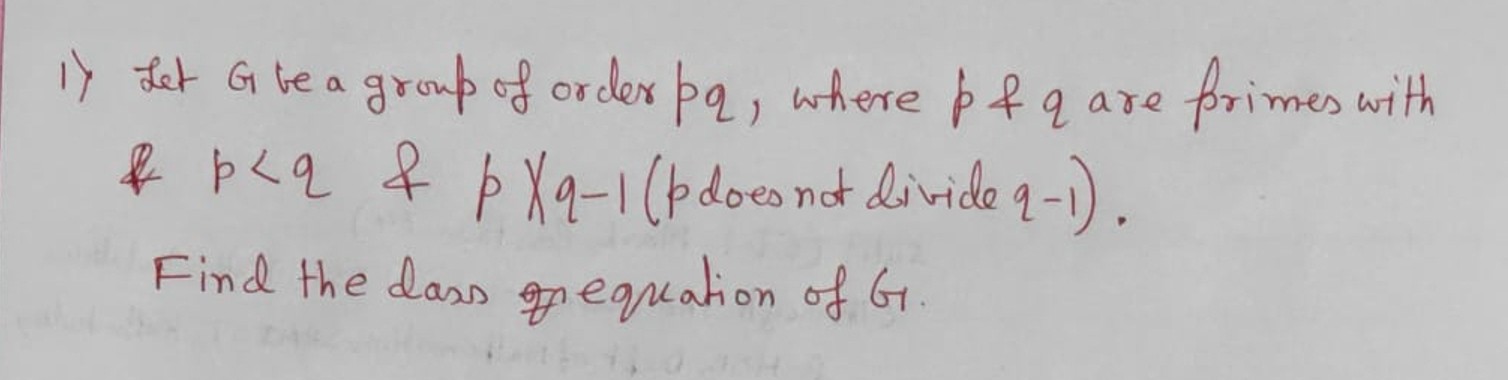 1) Let G be a group of order pq, where p & q are primes with
p<q & p∤q-1 (p does not divide q-1).
Find the class equation of G.